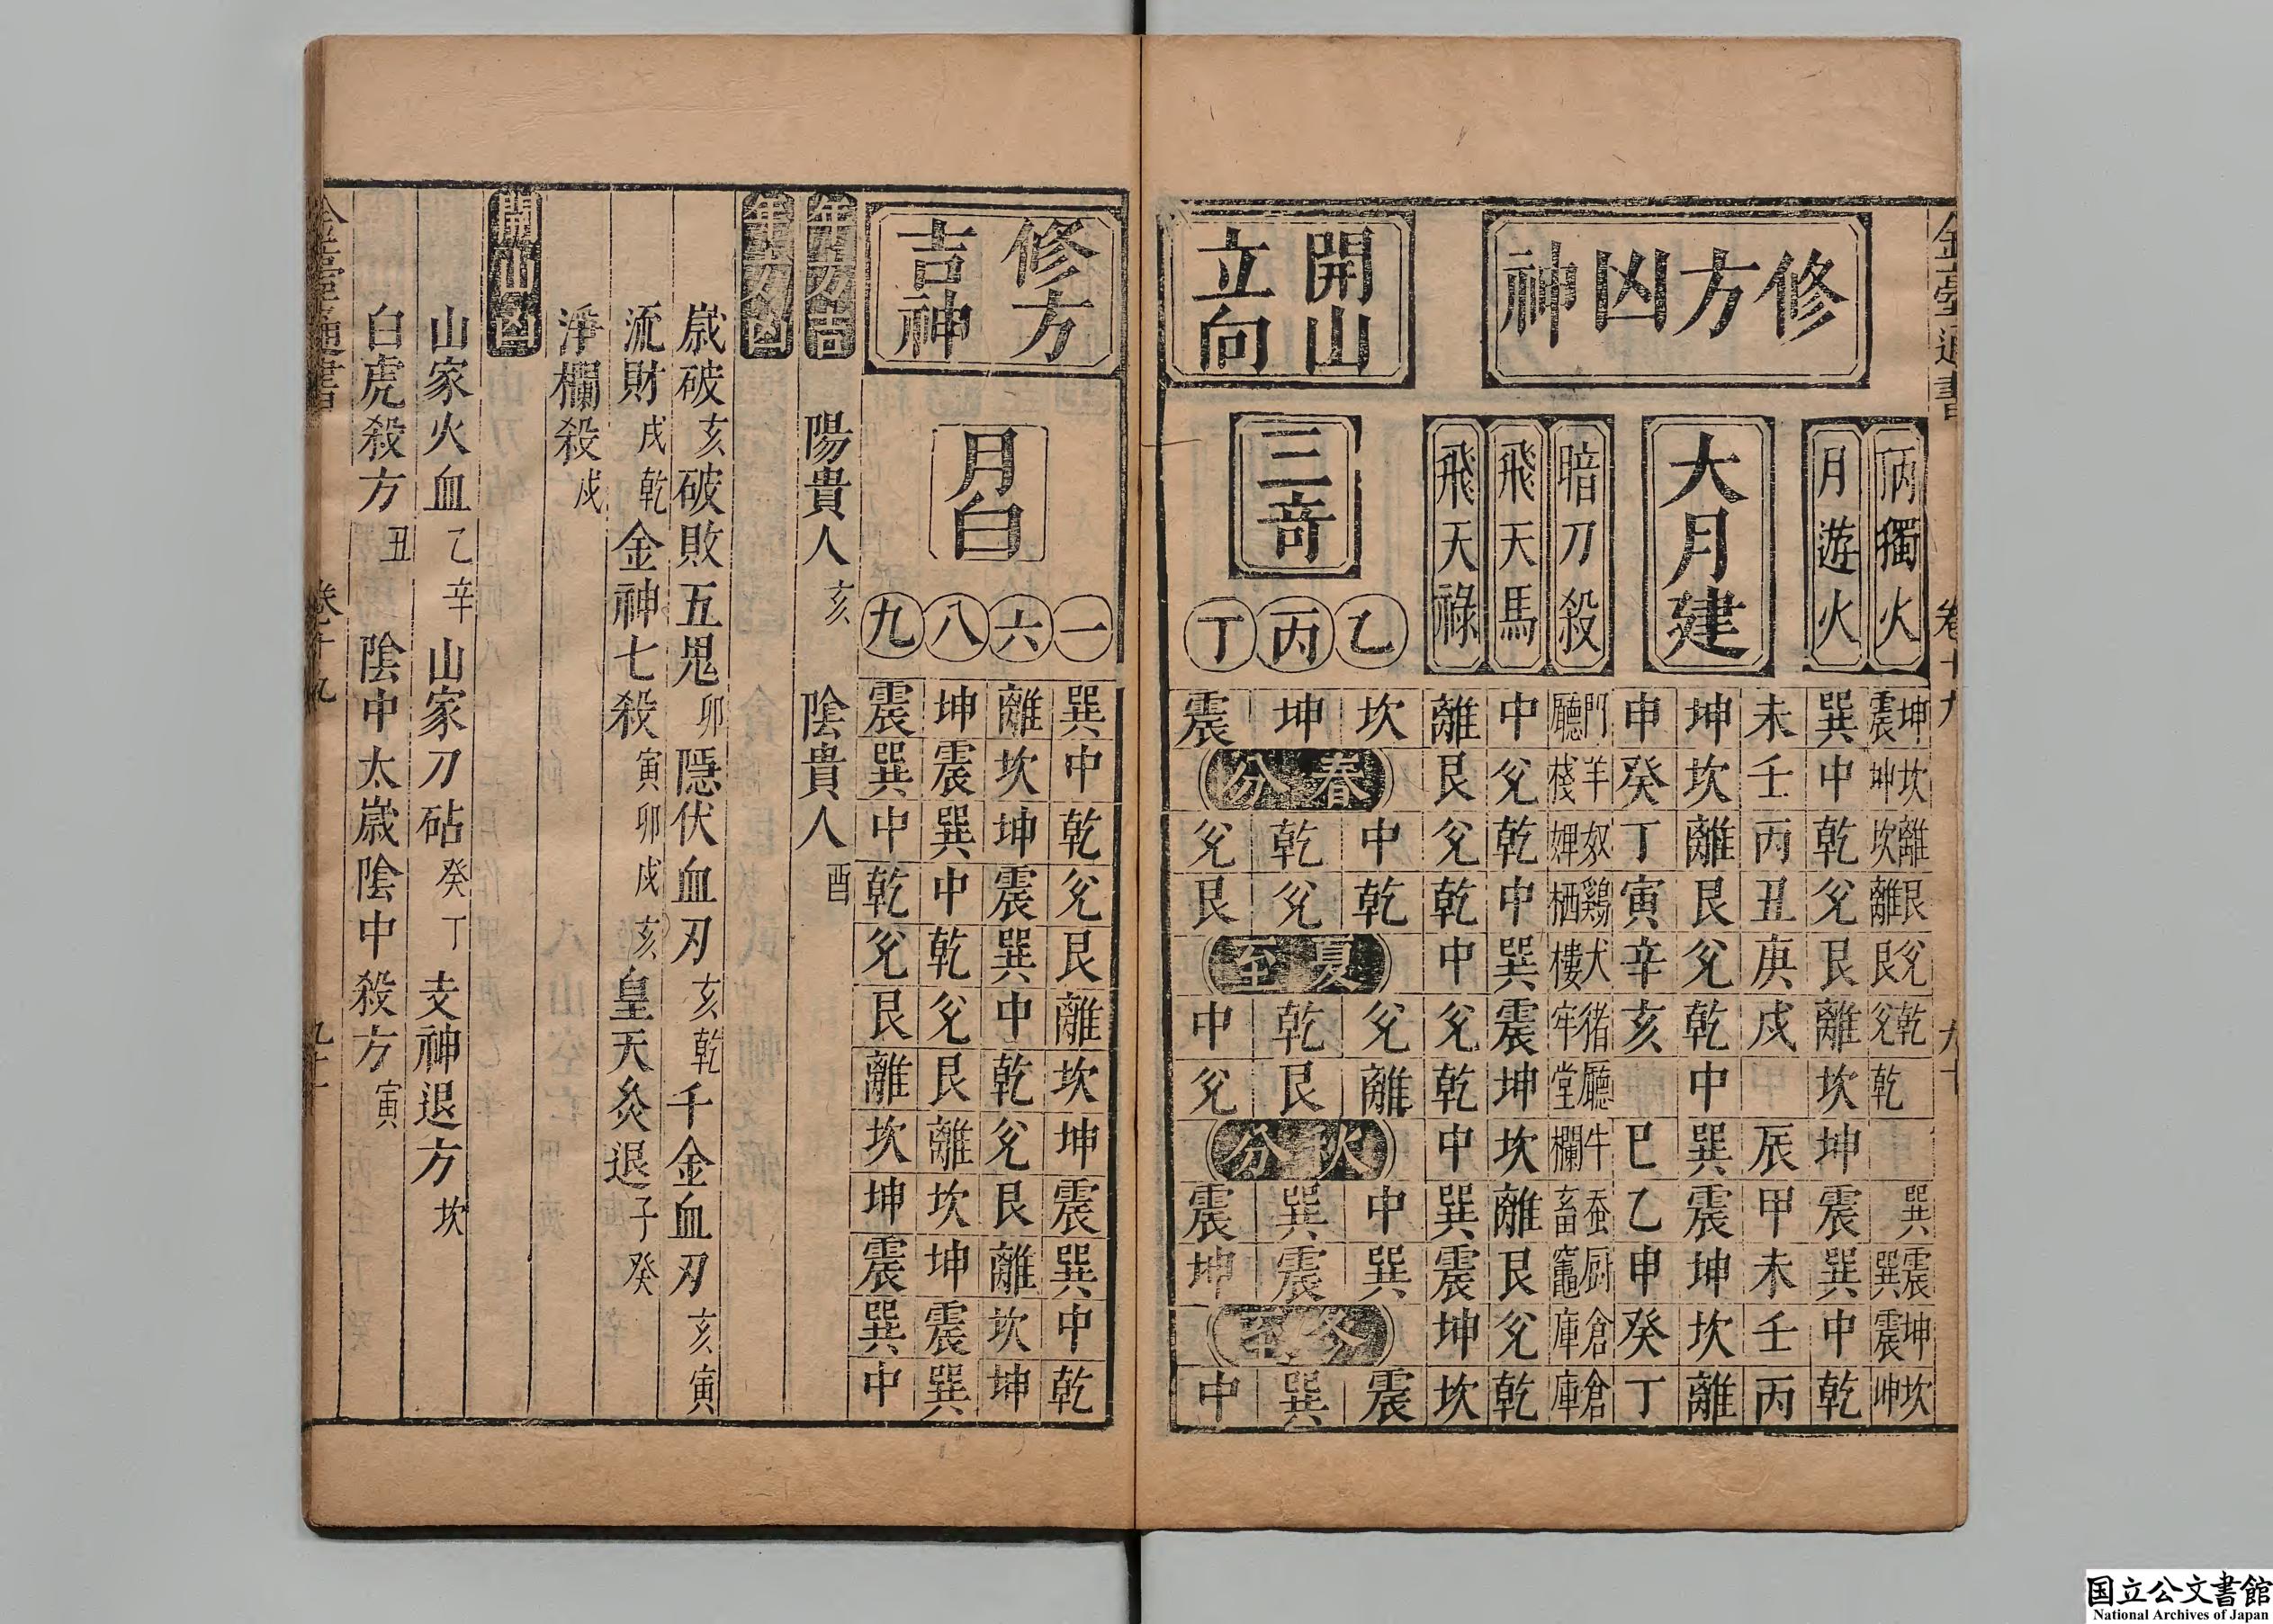 金臺通書 卷十九 九十
修方凶神
丙獨火
坤震 坎坤 離坎 艮離 兌艮 乾兌 乾 巽 震巽 坤震 坎坤
月遊火
巽 中 乾 兌 艮 離 坎 坤 震 巽 中 乾
大月建
未 壬 丙 丑 庚 戌 中 辰 甲 未 壬 丙
坤 坎 離 艮 兌 乾 中 巽 震 坤 坎 離
申 癸 丁 寅 辛 亥 巳 乙 申 癸 丁
暗刀殺
門廳 羊棧 奴婢 鷄栖 犬樓 猪牢 廳堂 牛欄 蚕畜 厨竈 倉庫 倉庫
飛天馬
中 兌 乾 中 巽 震 坤 坎 離 艮 兌 乾
飛天祿
離 艮 兌 乾 中 兌 乾 中 巽 震 坤 坎
開山
立向
三竒
乙 丙 丁
坎 坤 震
春分
中 乾 兌
乾 兌 艮
夏至
兌 乾 中
離 艮 兌
秋分
中 巽 震
巽 震 坤
冬至
震 巽 中
修方
吉神
月白
一 巽 中 乾 兌 艮 離 坎 坤 震 巽 中 乾
六 離 坎 坤 震 巽 中 乾 兌 艮 離 坎 坤
八 坤 震 巽 中 乾 兌 艮 離 坎 坤 震 巽
九 震 巽 中 乾 兌 艮 離 坎 坤 震 巽 中
年方吉
陽貴人亥 陰貴人酉
年方凶
歲破亥破敗五鬼卯隱伏血刃亥乾千金血刃亥寅
流財戌乾金神七殺寅卯戌亥皇天灸退子癸
淨欄殺戌
開山凶
山家火血乙辛山家刀砧癸丁支神退方坎
白虎殺方丑 陰中太歲陰中殺方寅
金臺通書 卷十九 九十一
国立公文書館
National Archives of Japan